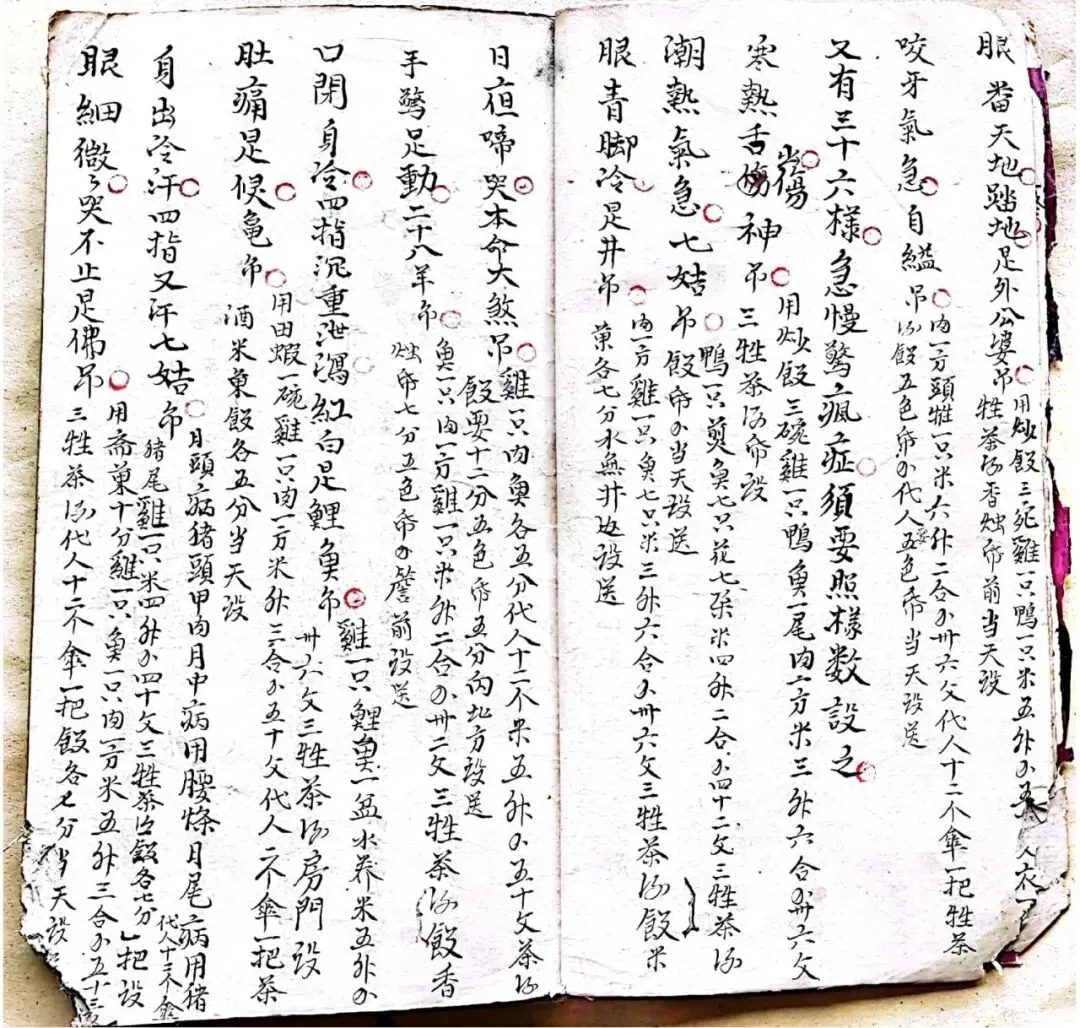 眼 番天地踏地是外公婆吊 用炒飯三宛雞一只鴨一只米五升
牲茶酒香烛帋前当天設
咬牙氣急自縊吊 肉一方頭牲一只米六升二合 卅六文代人十二个傘一把牲茶
酒飯五色帋 代人五色帋当天設送
又有三十六樣急慢驚瘋症須要照樣数設之
寒熱舌傷神吊 用炒飯三碗雞一只鴨魚一尾肉一方米三升六合 卅六文
三牲茶酒帋設
潮熱氣急七姑吊 鴨一只煎魚七只花七朵米四升二合 四十二文三牲茶酒
飯帋 当天設送
眼青脚冷是井吊 肉一方雞一只魚七只米三升六合 卅六文三牲茶酒飯米
菓各七分水無井边設送
日夜啼哭本命大煞吊 雞一只肉魚各五分代人十二个米五升 五十文茶酒
飯要十二分五色帋五分内北方設送
手驚足動二十八羊吊 魚一只肉一方雞一只米升二合 卅二文三牲茶酒飯香
烛帋七分五色帋 簷前設送
口閉身冷四指沉重泄瀉紅白是鯉魚吊 雞一只鯉魚一盆水养米五升
卅六文三牲茶酒房門設
肚痛是候亀吊 用田蝦一碗雞一只肉一方米升三合 五十文代人 不傘一把茶
酒米菓飯各五分当天設
身出冷汗四指又汗七姑吊 月頭病猪頭甲肉月中病用腰條月尾病用猪
猪尾雞一只米四升 四十文三牲茶酒飯各七分 代人十二不傘一把設
眼細微々哭不止是佛吊 用斋菓十分雞一只魚一只肉一方米五升三合 五十三
三牲茶酒代人十二个傘一把飯各七分当天設